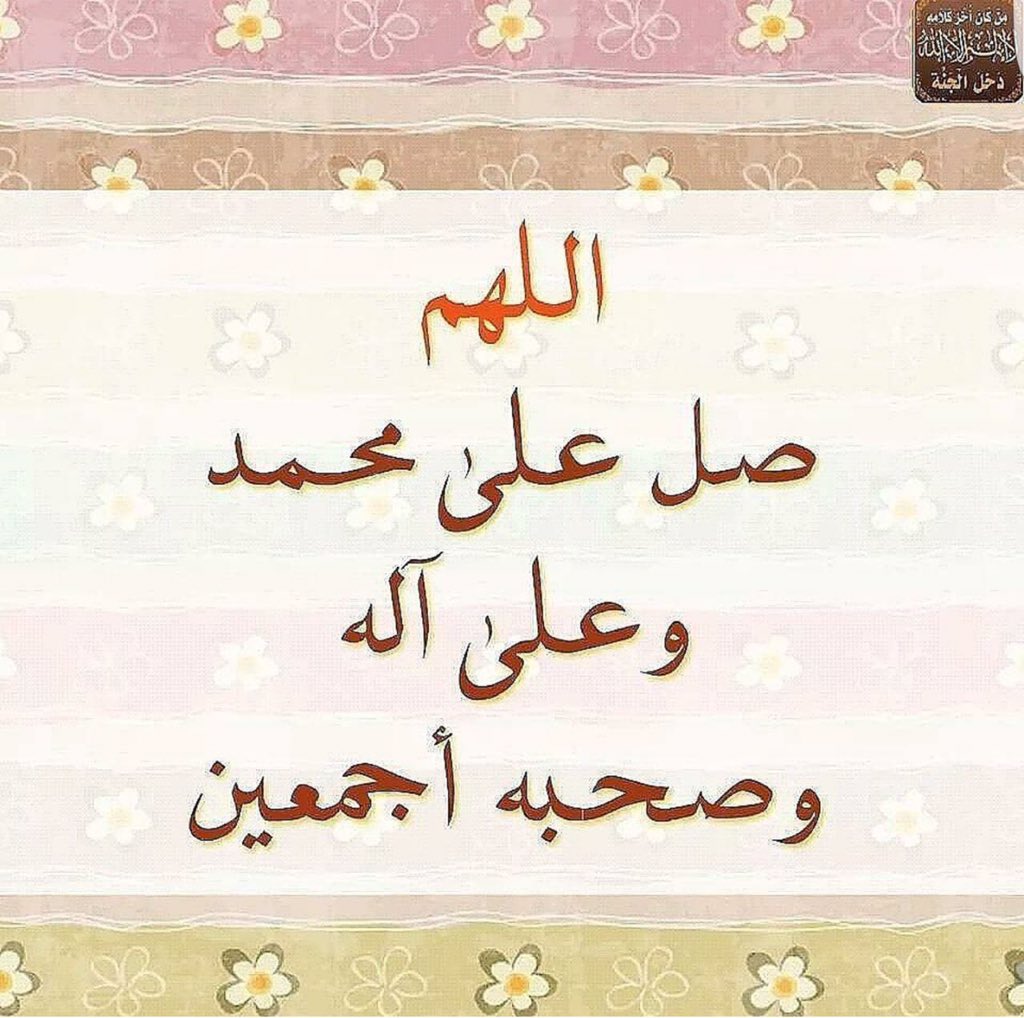 من كان آخر كلامه
لا إله إلا الله
دخل الجنة
اللهم
صل على محمد
وعلى آله
وصحبه أجمعين